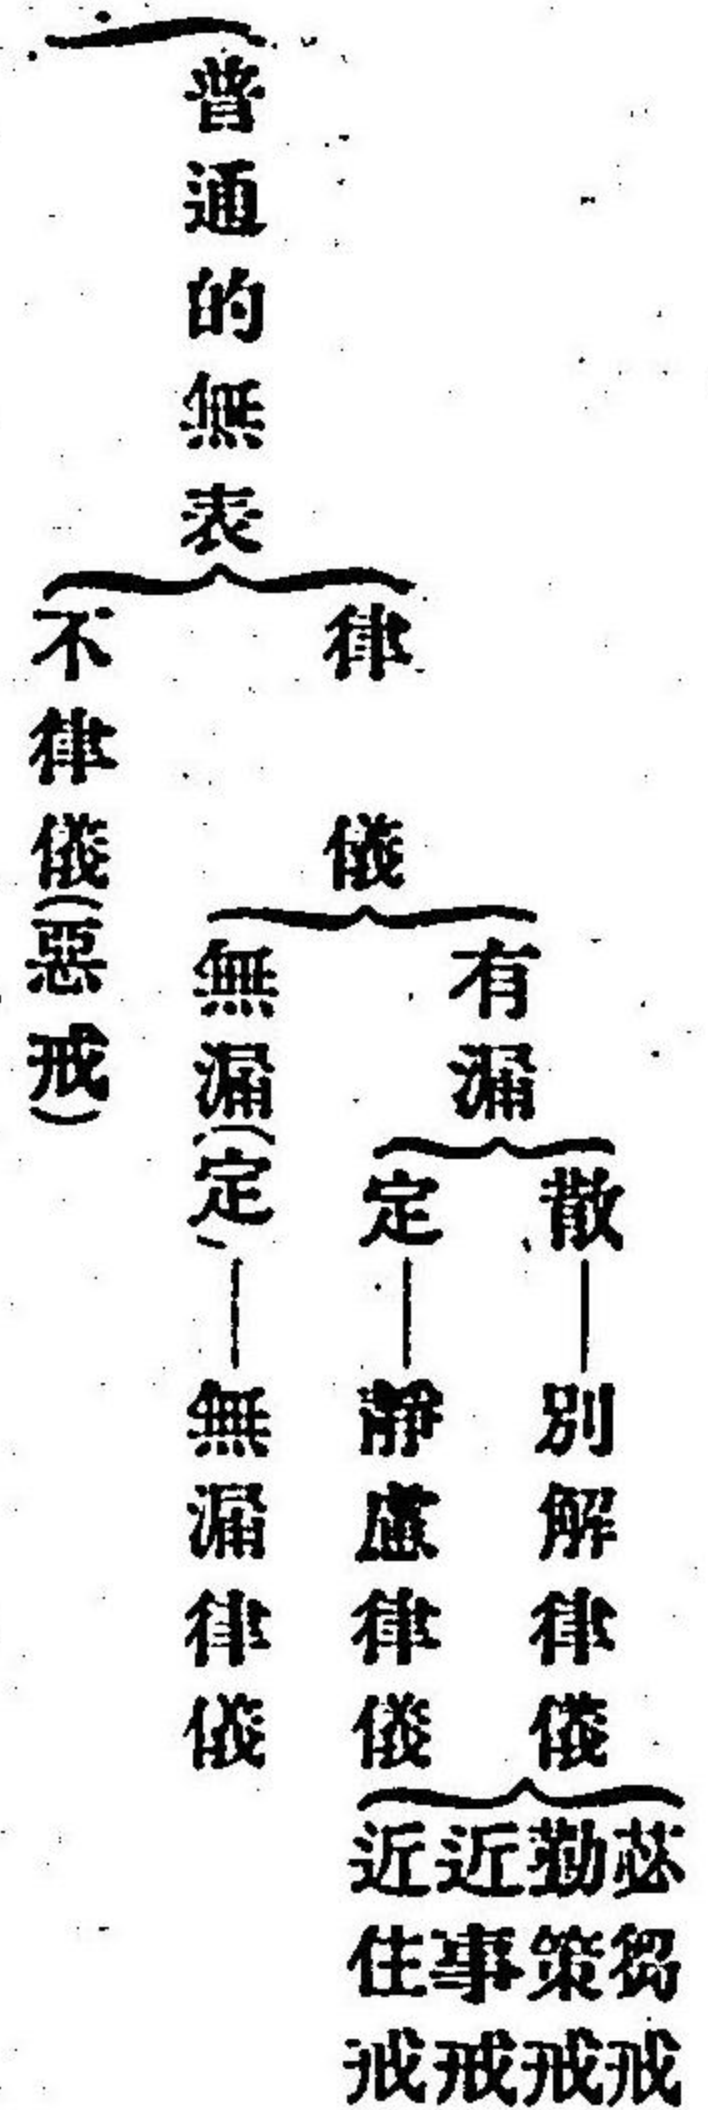 普通的無表
律儀
有漏
散
別解律儀
苾芻戒
勤策戒
近事戒
近住戒
定
靜慮律儀
無漏(定)
無漏律儀
不律儀(惡戒)